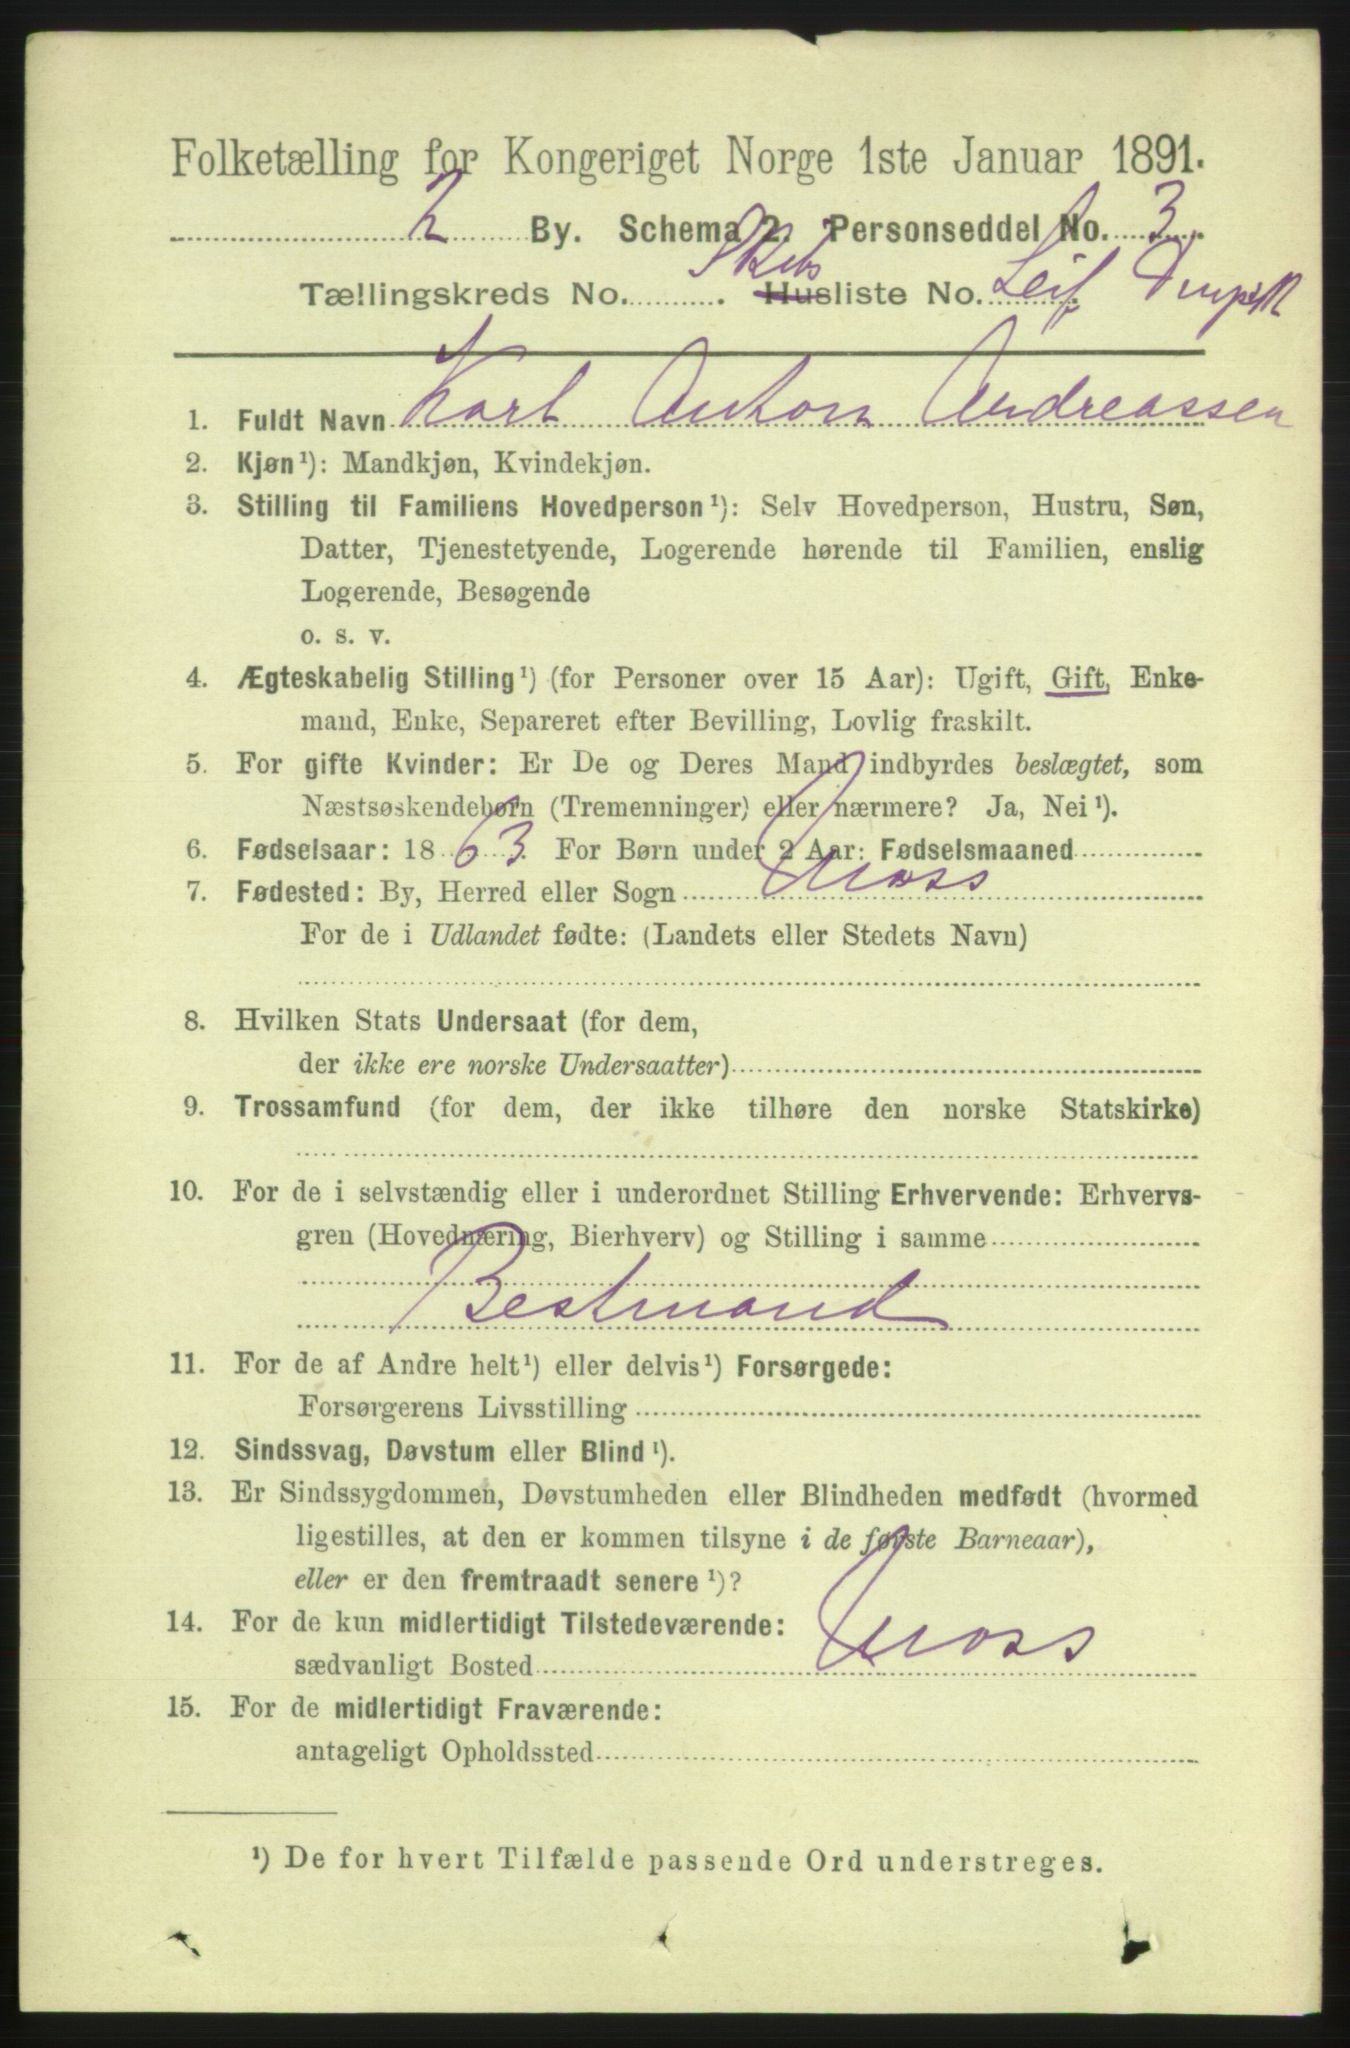 Folketælling for Kongeriget Norge 1ste Januar 1891.
2 By. Schema 2. Personseddel No. 3
Skibs
Tællingskreds No. . Husliste No. Leif
1. Fuldt Navn Karl Anton Andreassen
2. Kjøn ¹): Mandkjøn, Kvindekjøn.
3. Stilling til Familiens Hovedperson ¹): Selv Hovedperson, Hustru, Søn,
Datter, Tjenestetyende, Logerende hørende til Familien, enslig
Logerende, Besøgende
o. s. v.
4. Ægteskabelig Stilling ¹) (for Personer over 15 Aar): Ugift, Gift, Enke-
mand, Enke, Separeret efter Bevilling, Lovlig fraskilt.
5. For gifte Kvinder: Er De og Deres Mand indbyrdes beslægtet, som
Næstsøskendebørn (Tremenninger) eller nærmere? Ja, Nei ¹).
6. Fødselsaar: 1863. For Børn under 2 Aar: Fødselsmaaned
7. Fødested: By, Herred eller Sogn Moss
For de i Udlandet fødte: (Landets eller Stedets Navn)
8. Hvilken Stats Undersaat (for dem,
der ikke ere norske Undersaatter)
9. Trossamfund (for dem, der ikke tilhøre den norske Statskirke)
10. For de i selvstændig eller i underordnet Stilling Erhvervende: Erhvervs-
gren (Hovednæring, Bierhverv) og Stilling i samme
Bestmand
11. For de af Andre helt ¹) eller delvis ¹) Forsørgede:
Forsørgerens Livsstilling
12. Sindssvag, Døvstum eller Blind ¹).
13. Er Sindssygdommen, Døvstumheden eller Blindheden medfødt (hvormed
ligestilles, at den er kommen tilsyne i de første Barneaar),
eller er den fremtraadt senere ¹)?
14. For de kun midlertidigt Tilstedeværende:
sædvanligt Bosted Moss
15. For de midlertidigt Fraværende:
antageligt Opholdssted
¹) De for hvert Tilfælde passende Ord understreges.